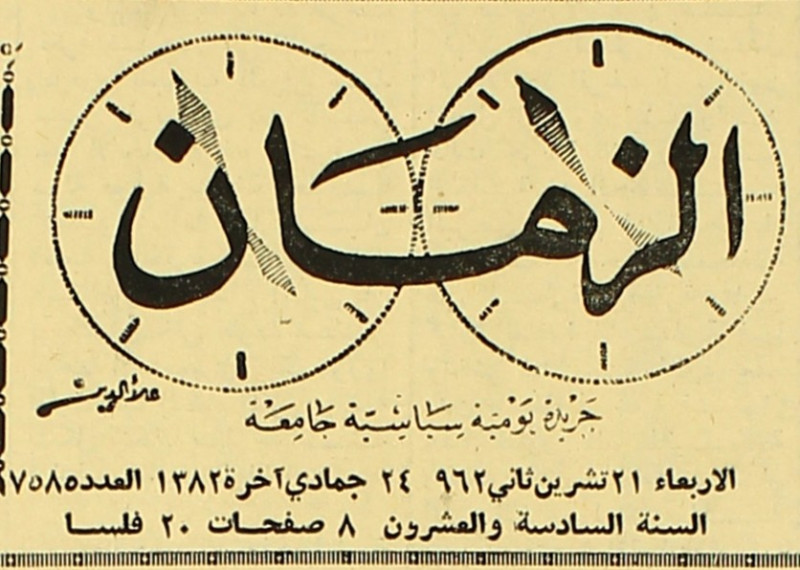 الزمان
علاالدين
جريدة يومية سياسية جامعة
الاربعاء ٢١ تشرين ثاني ٩٦٢ ٢٤ جمادي آخرة ١٣٨٢ العدد
السنة السادسة والعشرون ٨ صفحات ٢٠ فلسا